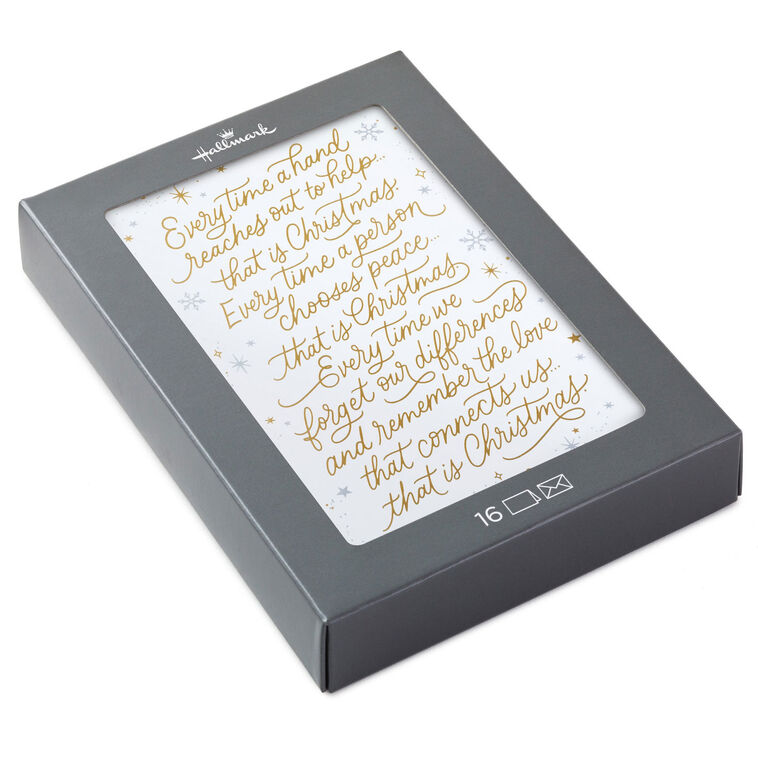 Hallmark
Every time a hand
reaches out to help...
that is Christmas.
Every time a person
chooses peace...
that is Christmas.
Every time we
forget our differences
and remember the love
that connects us...
that is Christmas.
16